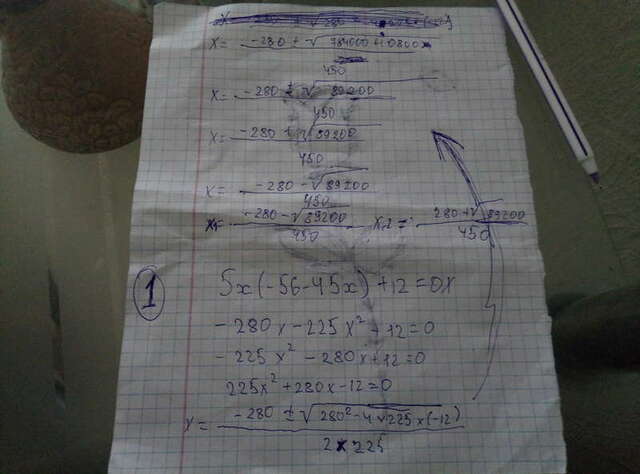 x = (-280 ± √784000 + 10800) / 450
x = (-280 ± √89200) / 450
x = (-280 ± √89200) / 450
x = (-280 - √89200) / 450
x1 = (-280 - √89200) / 450 x2 = (280 + √89200) / 450
1 5x(-56-45x)+12=0x
-280x-225x²+12=0
-225x²-280x+12=0
225x²+280x-12=0
x = (-280 ± √280²-4√225x(-12)) / 2x225